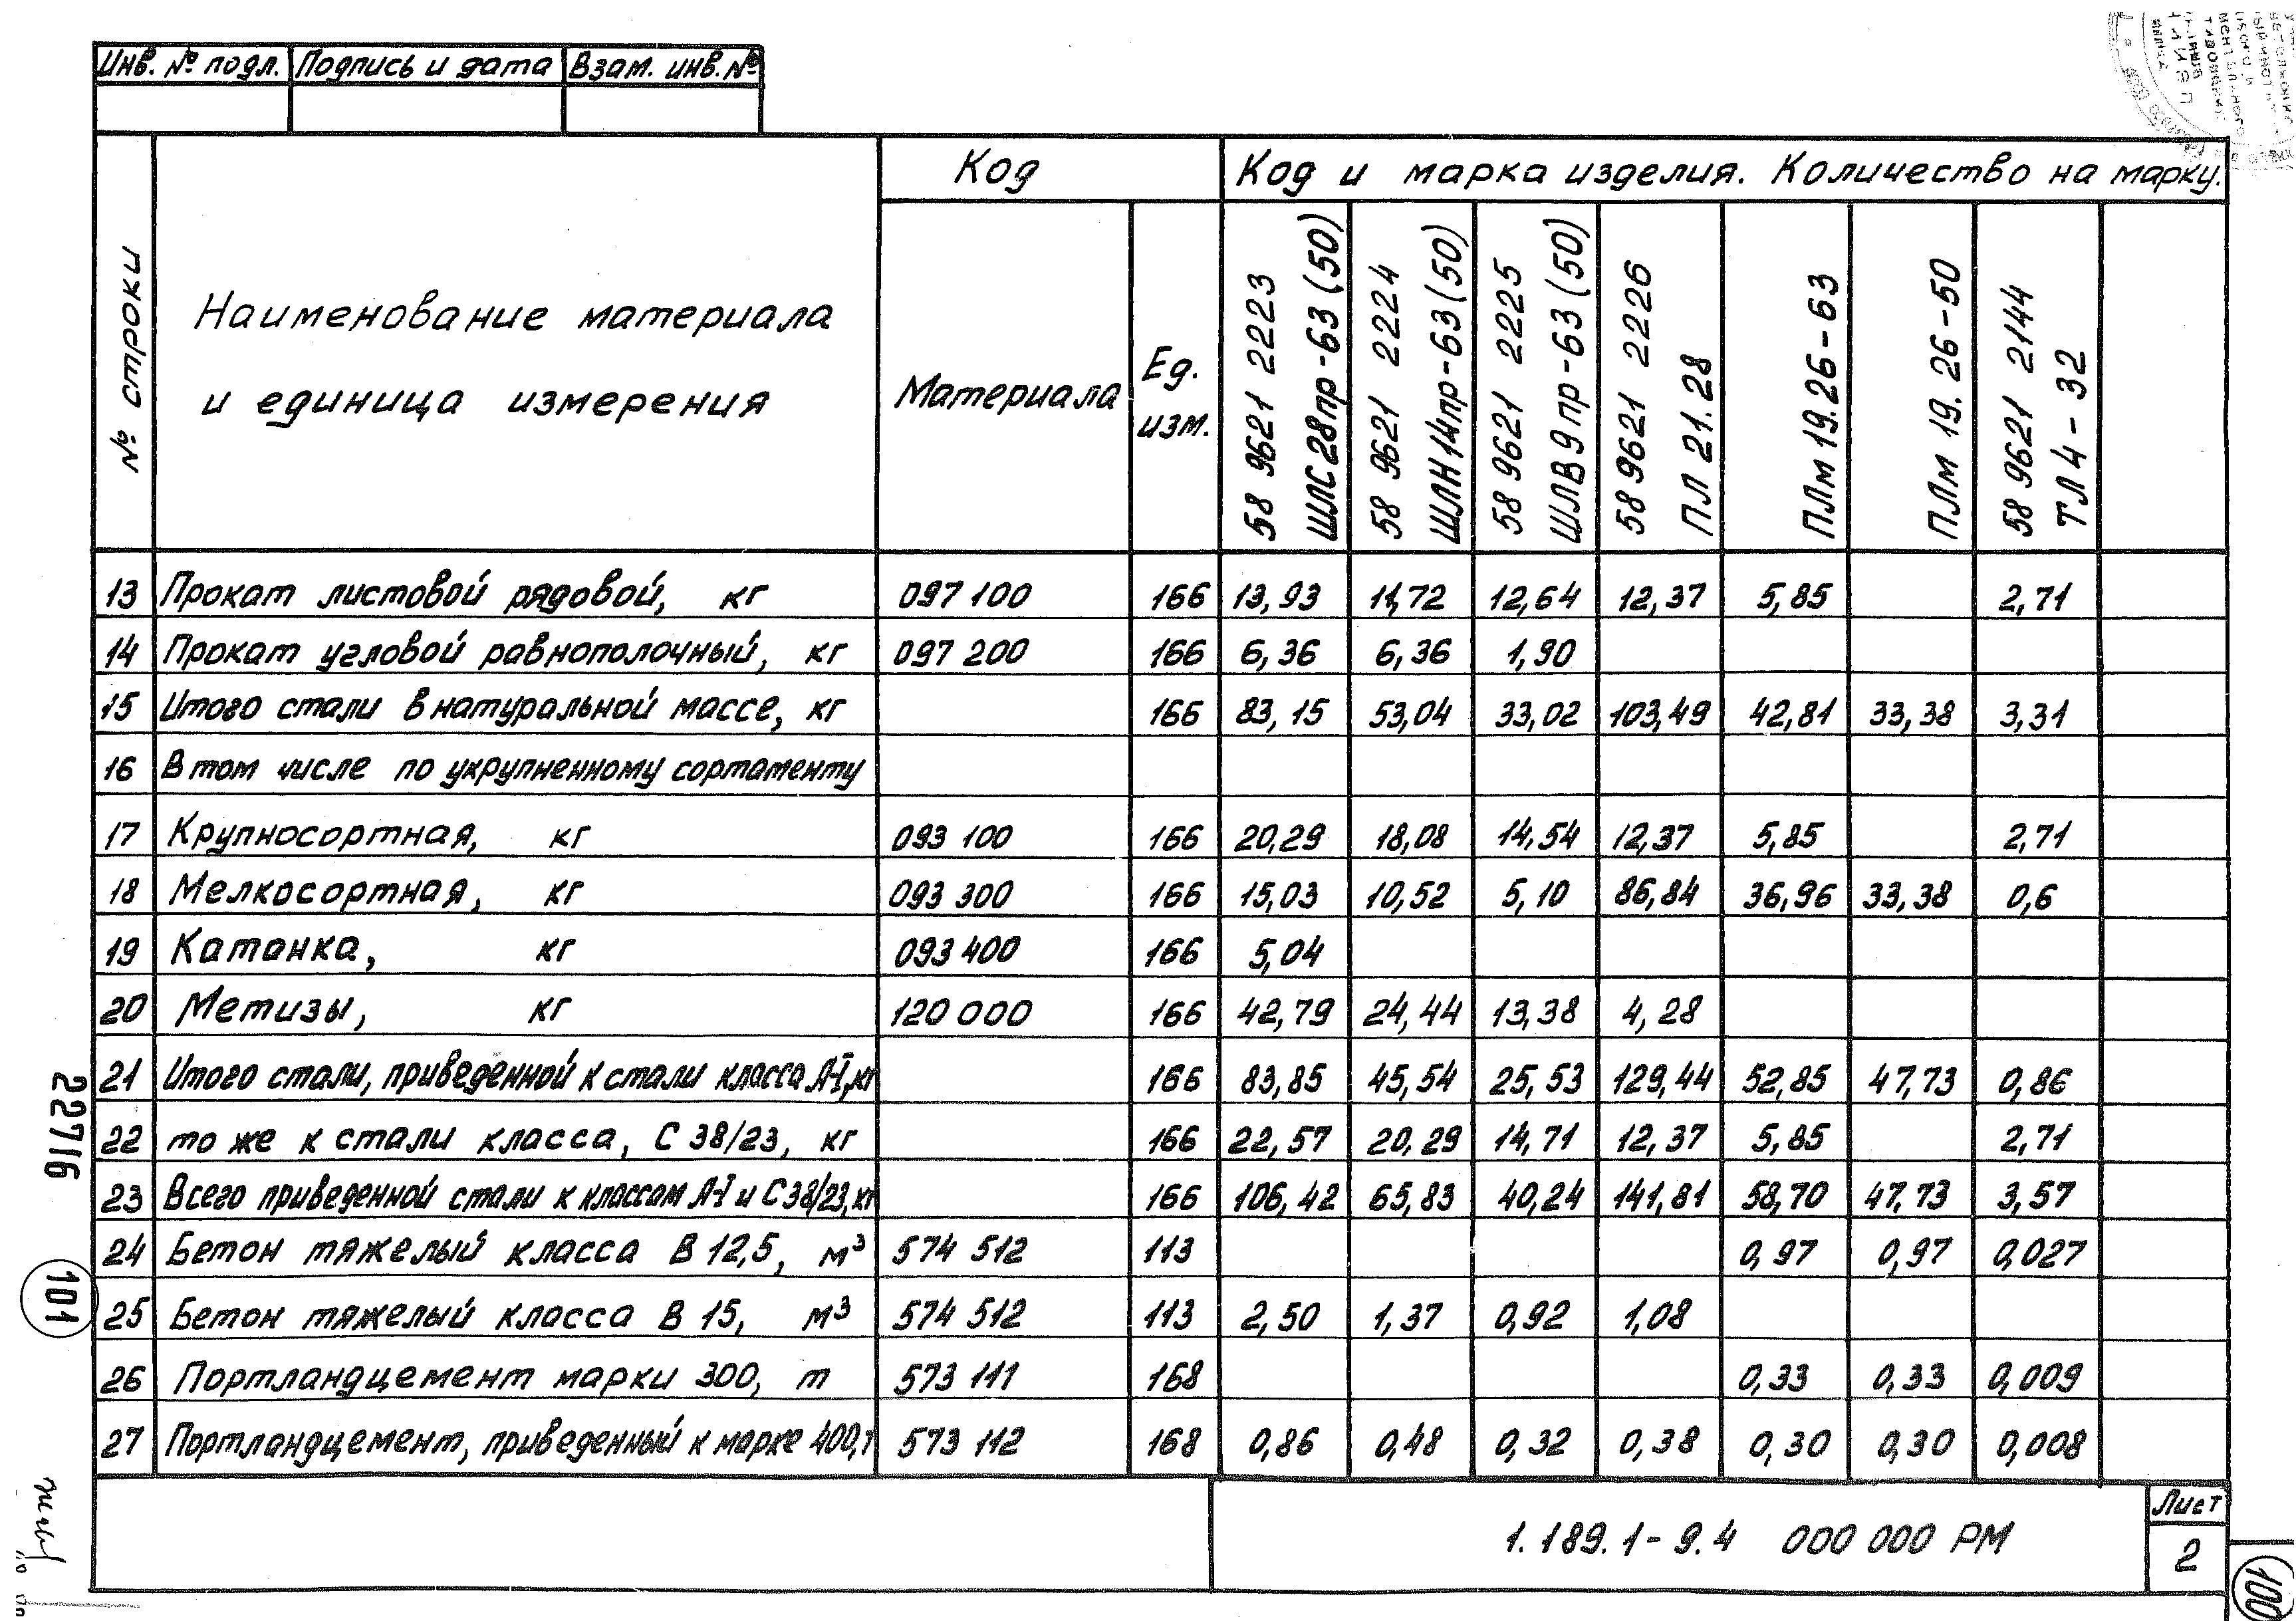 Инв. № подл. Подпись и дата Взам. инв. №
№ строки
Наименование материала
и единица измерения
Код
Материала
Ед.
изм.
Код и марка изделия. Количество на марку.
58 9621 2223
ШЛС28пр-63(50)
58 9621 2224
ШЛН14пр-63(50)
58 9621 2225
ШЛВ9пр-63(50)
58 9621 2226
ПЛ 21.28
ПЛм 19.26-63
ПЛм 19.26-50
58 9621 2144
ТЛ 4-32
13 Прокат листовой рядовой, кг 097 100 166 13,93 11,72 12,64 12,37 5,85 2,71
14 Прокат угловой равнополочный, кг 097 200 166 6,36 6,36 1,90
15 Итого стали в натуральной массе, кг 166 83,15 53,04 33,02 103,49 42,81 33,38 3,31
16 В том числе по укрупненному сортаменту
17 Крупносортная, кг 093 100 166 20,29 18,08 14,54 12,37 5,85 2,71
18 Мелкосортная, кг 093 300 166 15,03 10,52 5,10 86,84 36,96 33,38 0,6
19 Катанка, кг 093 400 166 5,04
20 Метизы, кг 120 000 166 42,79 24,44 13,38 4,28
21 Итого стали, приведенной к стали класса А-I, кг 166 83,85 45,54 25,53 129,44 52,85 47,73 0,86
22 то же к стали класса, С 38/23, кг 166 22,57 20,29 14,71 12,37 5,85 2,71
23 Всего приведенной стали к классам А-I и С38/23, кг 166 106,42 65,83 40,24 141,81 58,70 47,73 3,57
24 Бетон тяжелый класса В 12,5, м³ 574 512 113 0,97 0,97 0,027
25 Бетон тяжелый класса В 15, м³ 574 512 113 2,50 1,37 0,92 1,08
26 Портландцемент марки 300, т 573 111 168 0,33 0,33 0,009
27 Портландцемент, приведенный к марке 400, т 573 112 168 0,86 0,48 0,32 0,38 0,30 0,30 0,008
22716
101
1.189.1-9.4 000 000 РМ
Лист
2
100